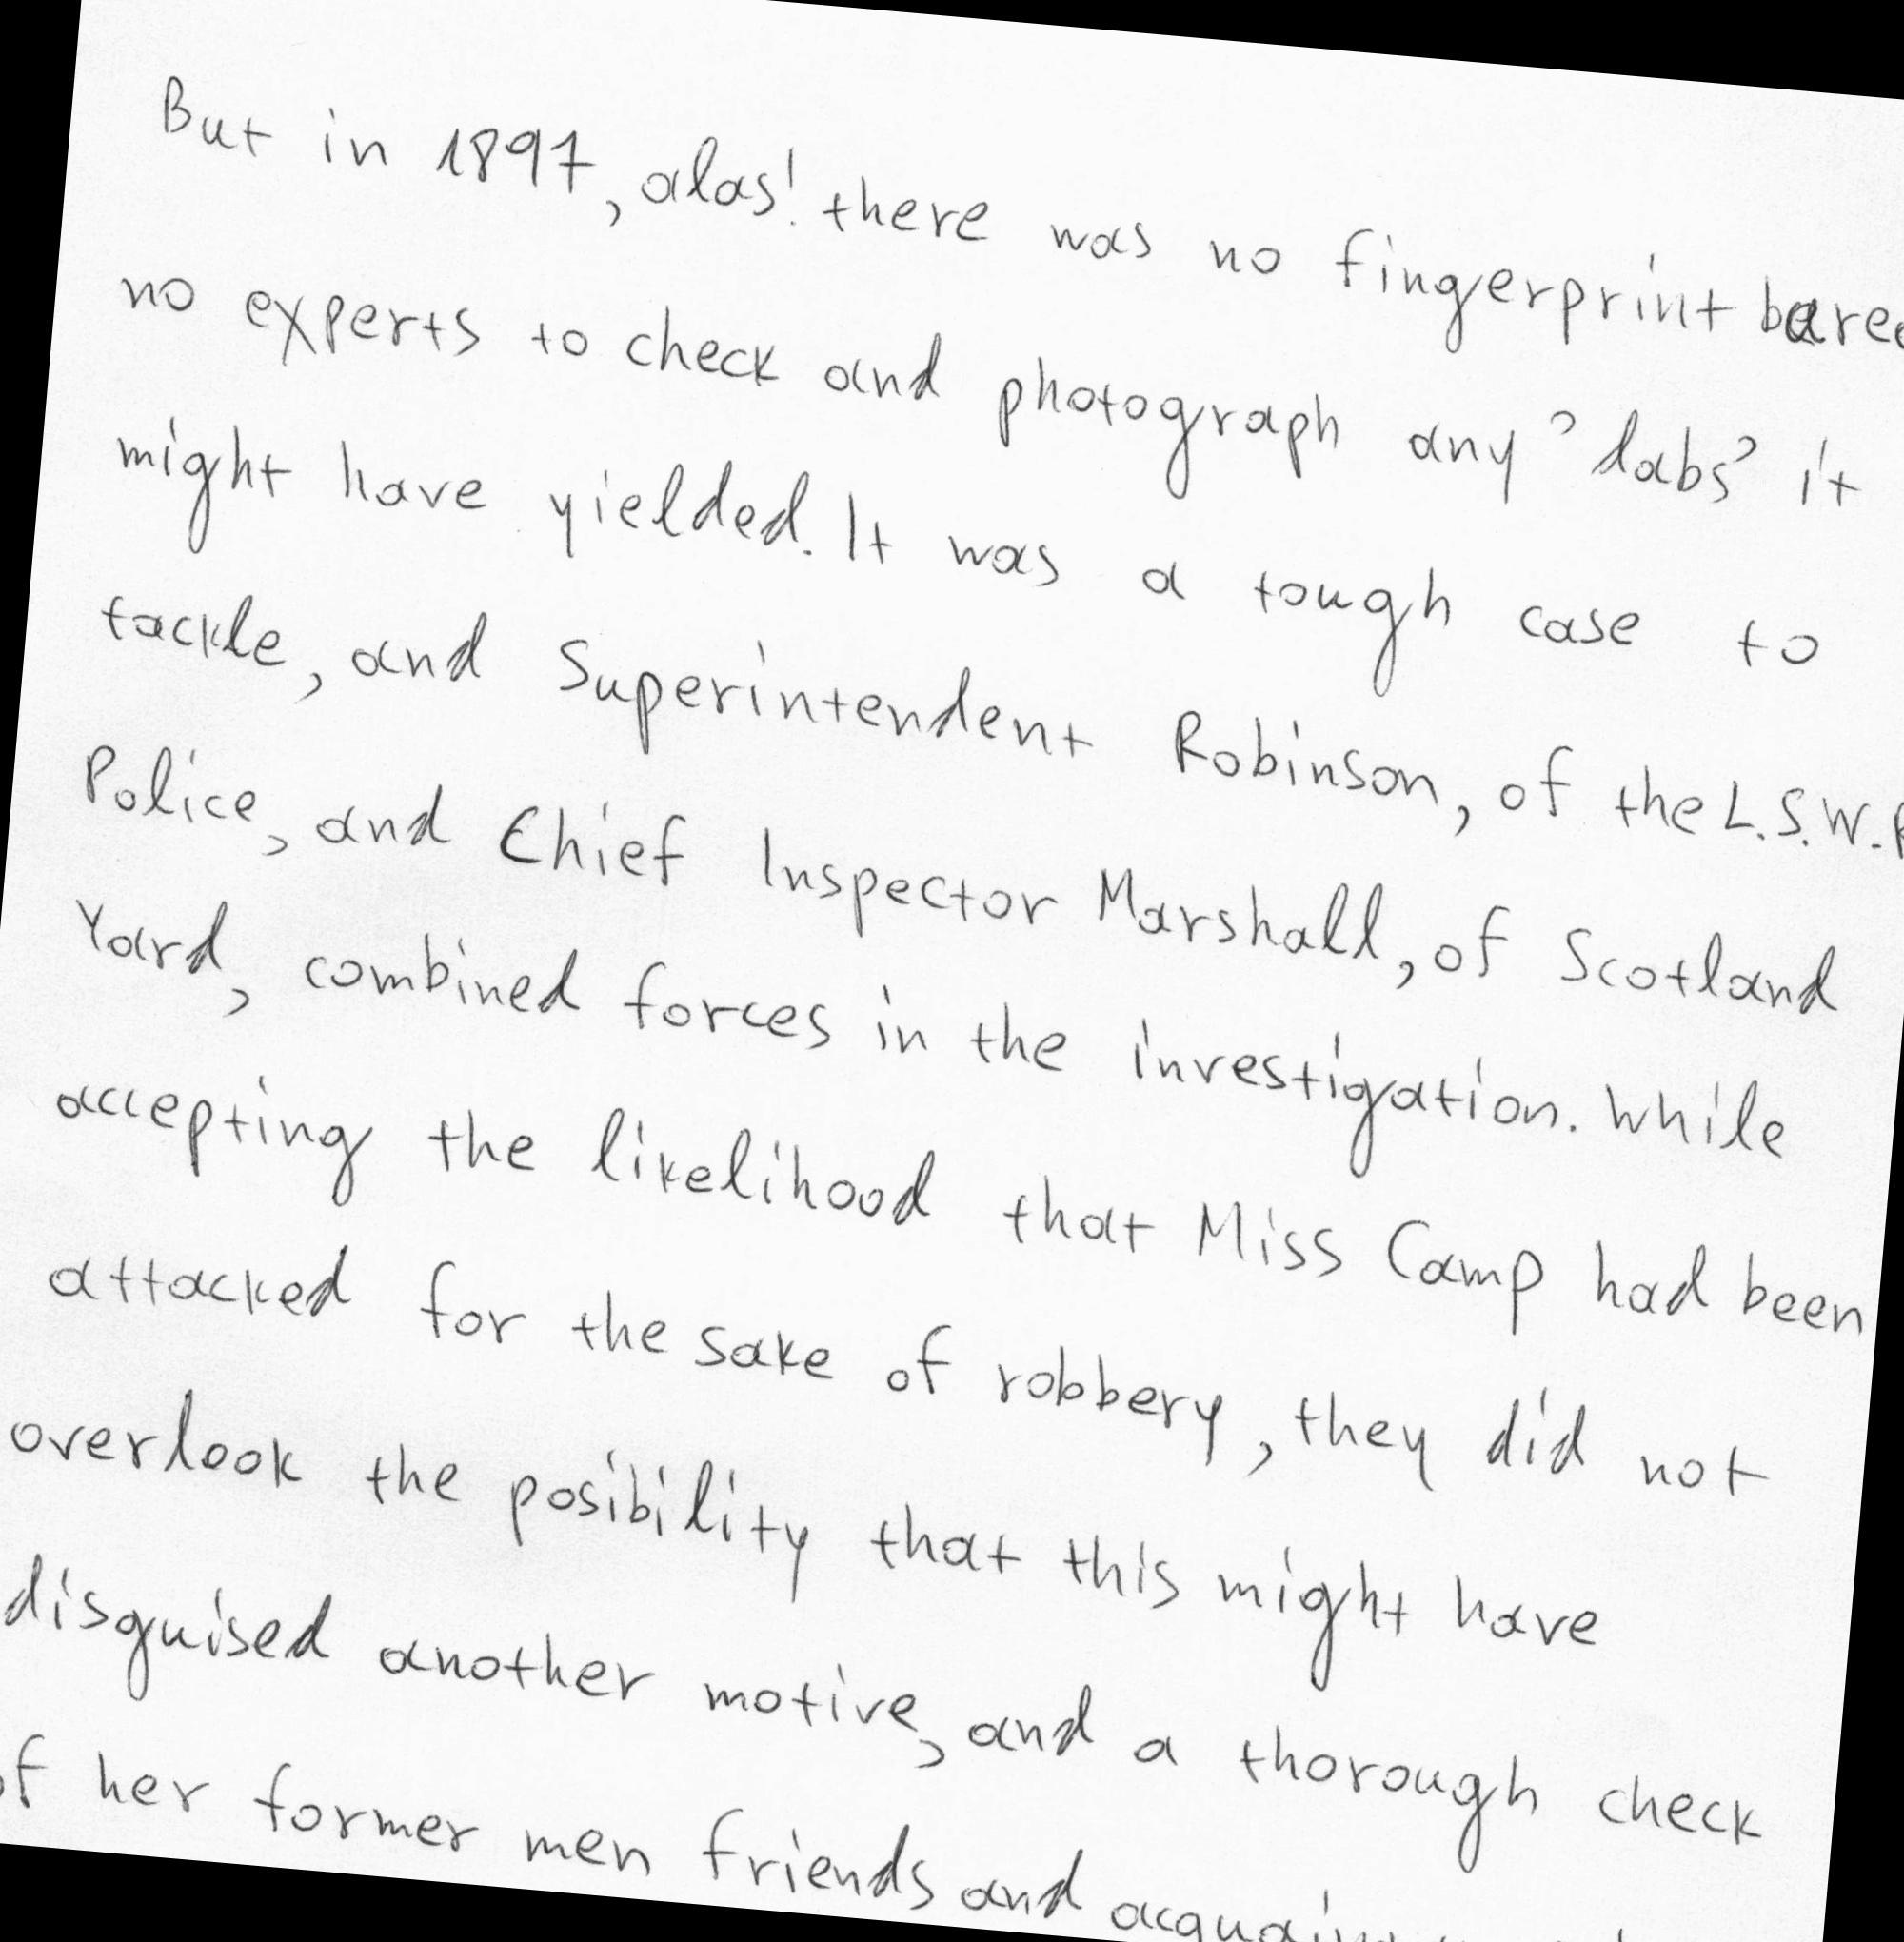 But in 1897, alas! there was no fingerprint
no experts to check and photograph any 'dabs' it
might have yielded. It was a tough case to
tackle, and Superintendent Robinson, of the L.S.W.
Police, and Chief Inspector Marshall, of Scotland
Yard, combined forces in the investigation. While
accepting the likelihood that Miss Camp had been
attacked for the sake of robbery, they did not
overlook the posibility that this might have
disguised another motive, and a thorough check
of her former men friends and